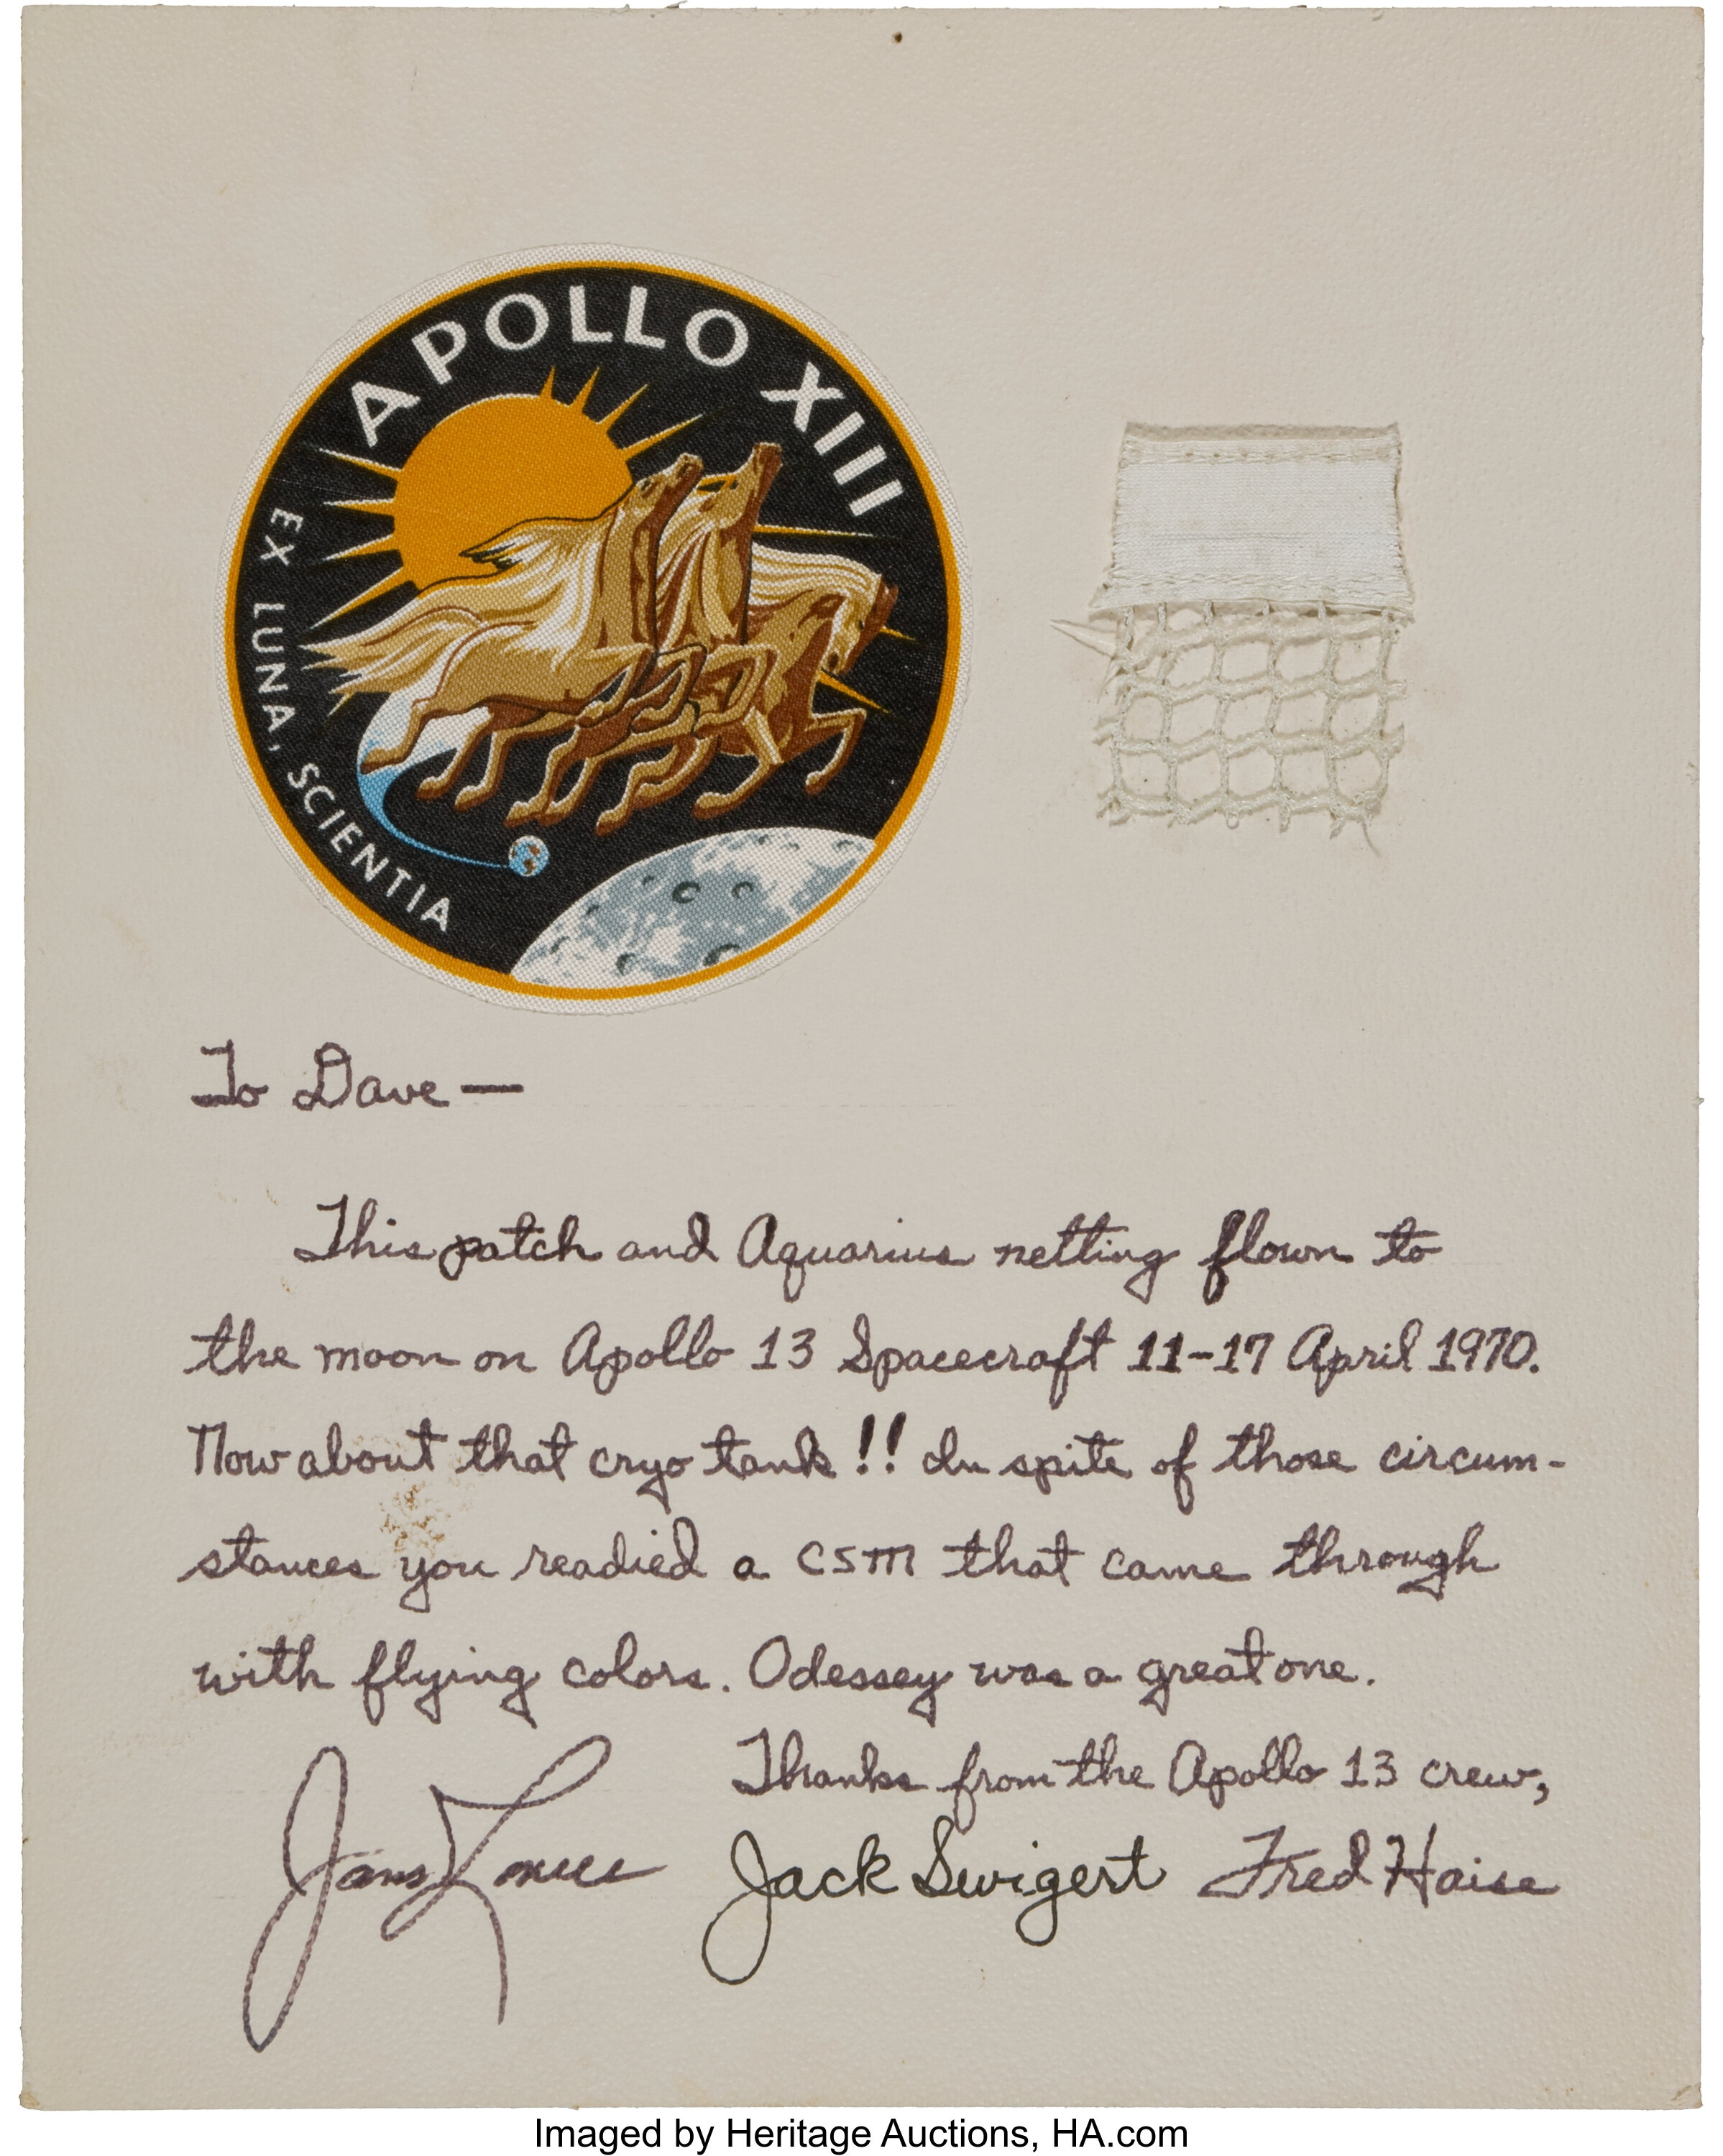 APOLLO XIII
EX LUNA, SCIENTIA
To Dave —
This patch and Aquarius netting flown to
the moon on Apollo 13 Spacecraft 11-17 April 1970.
Now about that cryo tank!! In spite of those circum-
stances you readied a CSM that came through
with flying colors. Odessey was a great one.
Thanks from the Apollo 13 crew,
James Lovell Jack Swigert Fred Haise
Imaged by Heritage Auctions, HA.com